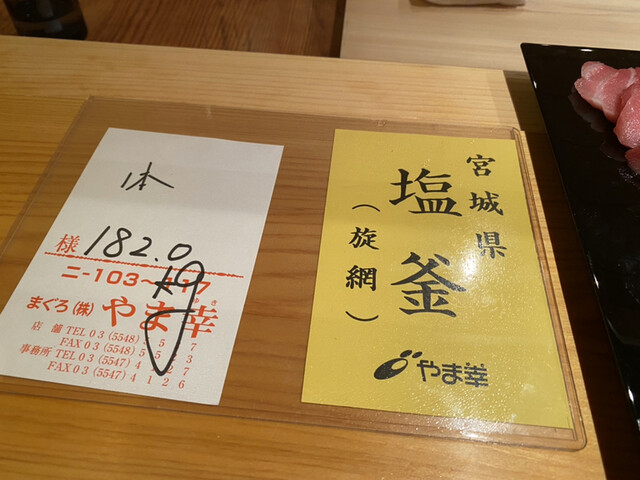 本
様 182.0
kg
まぐろ(株) やま幸
ゆき
店舗 TEL 03 (5548)
FAX 03 (5548)
事務所 TEL 03 (5547) 4127
FAX 03 (5547) 4126
宮城県
塩釜
(旋網)
やま幸